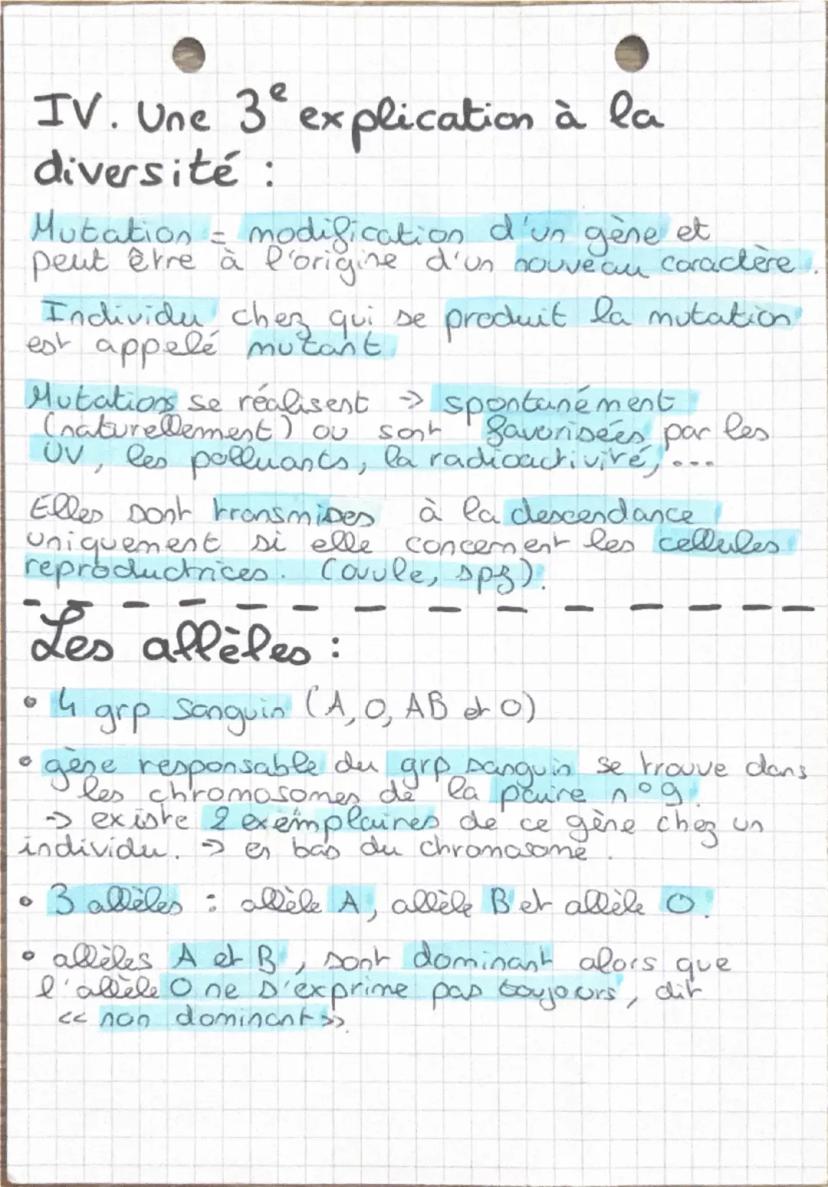 IV. Une 3e explication à la
diversité :
Mutation = modification d'un gène et
peut être à l'origine d'un nouveau caractère.
Individu chez qui se produit la mutation
est appelé mutant.
Mutations se réalisent -> spontanément
(naturellement) ou sont favorisées par les
UV, les polluants, la radioactivité, ...
Elles sont transmises à la descendance
uniquement si elle concernent les cellules
reproductrices. (ovule, spz).
Les allèles :
• 4 grp sanguin (A, O, AB et O)
• gène responsable du grp sanguin se trouve dans
les chromosomes de la paire n°9.
-> existe 2 exemplaires de ce gène chez un
individu. -> en bas du chromosome.
• 3 allèles : allèle A, allèle B et allèle O.
• allèles A et B, sont dominant alors que
l'allèle O ne s'exprime pas toujours, dit
<< non dominant >>.